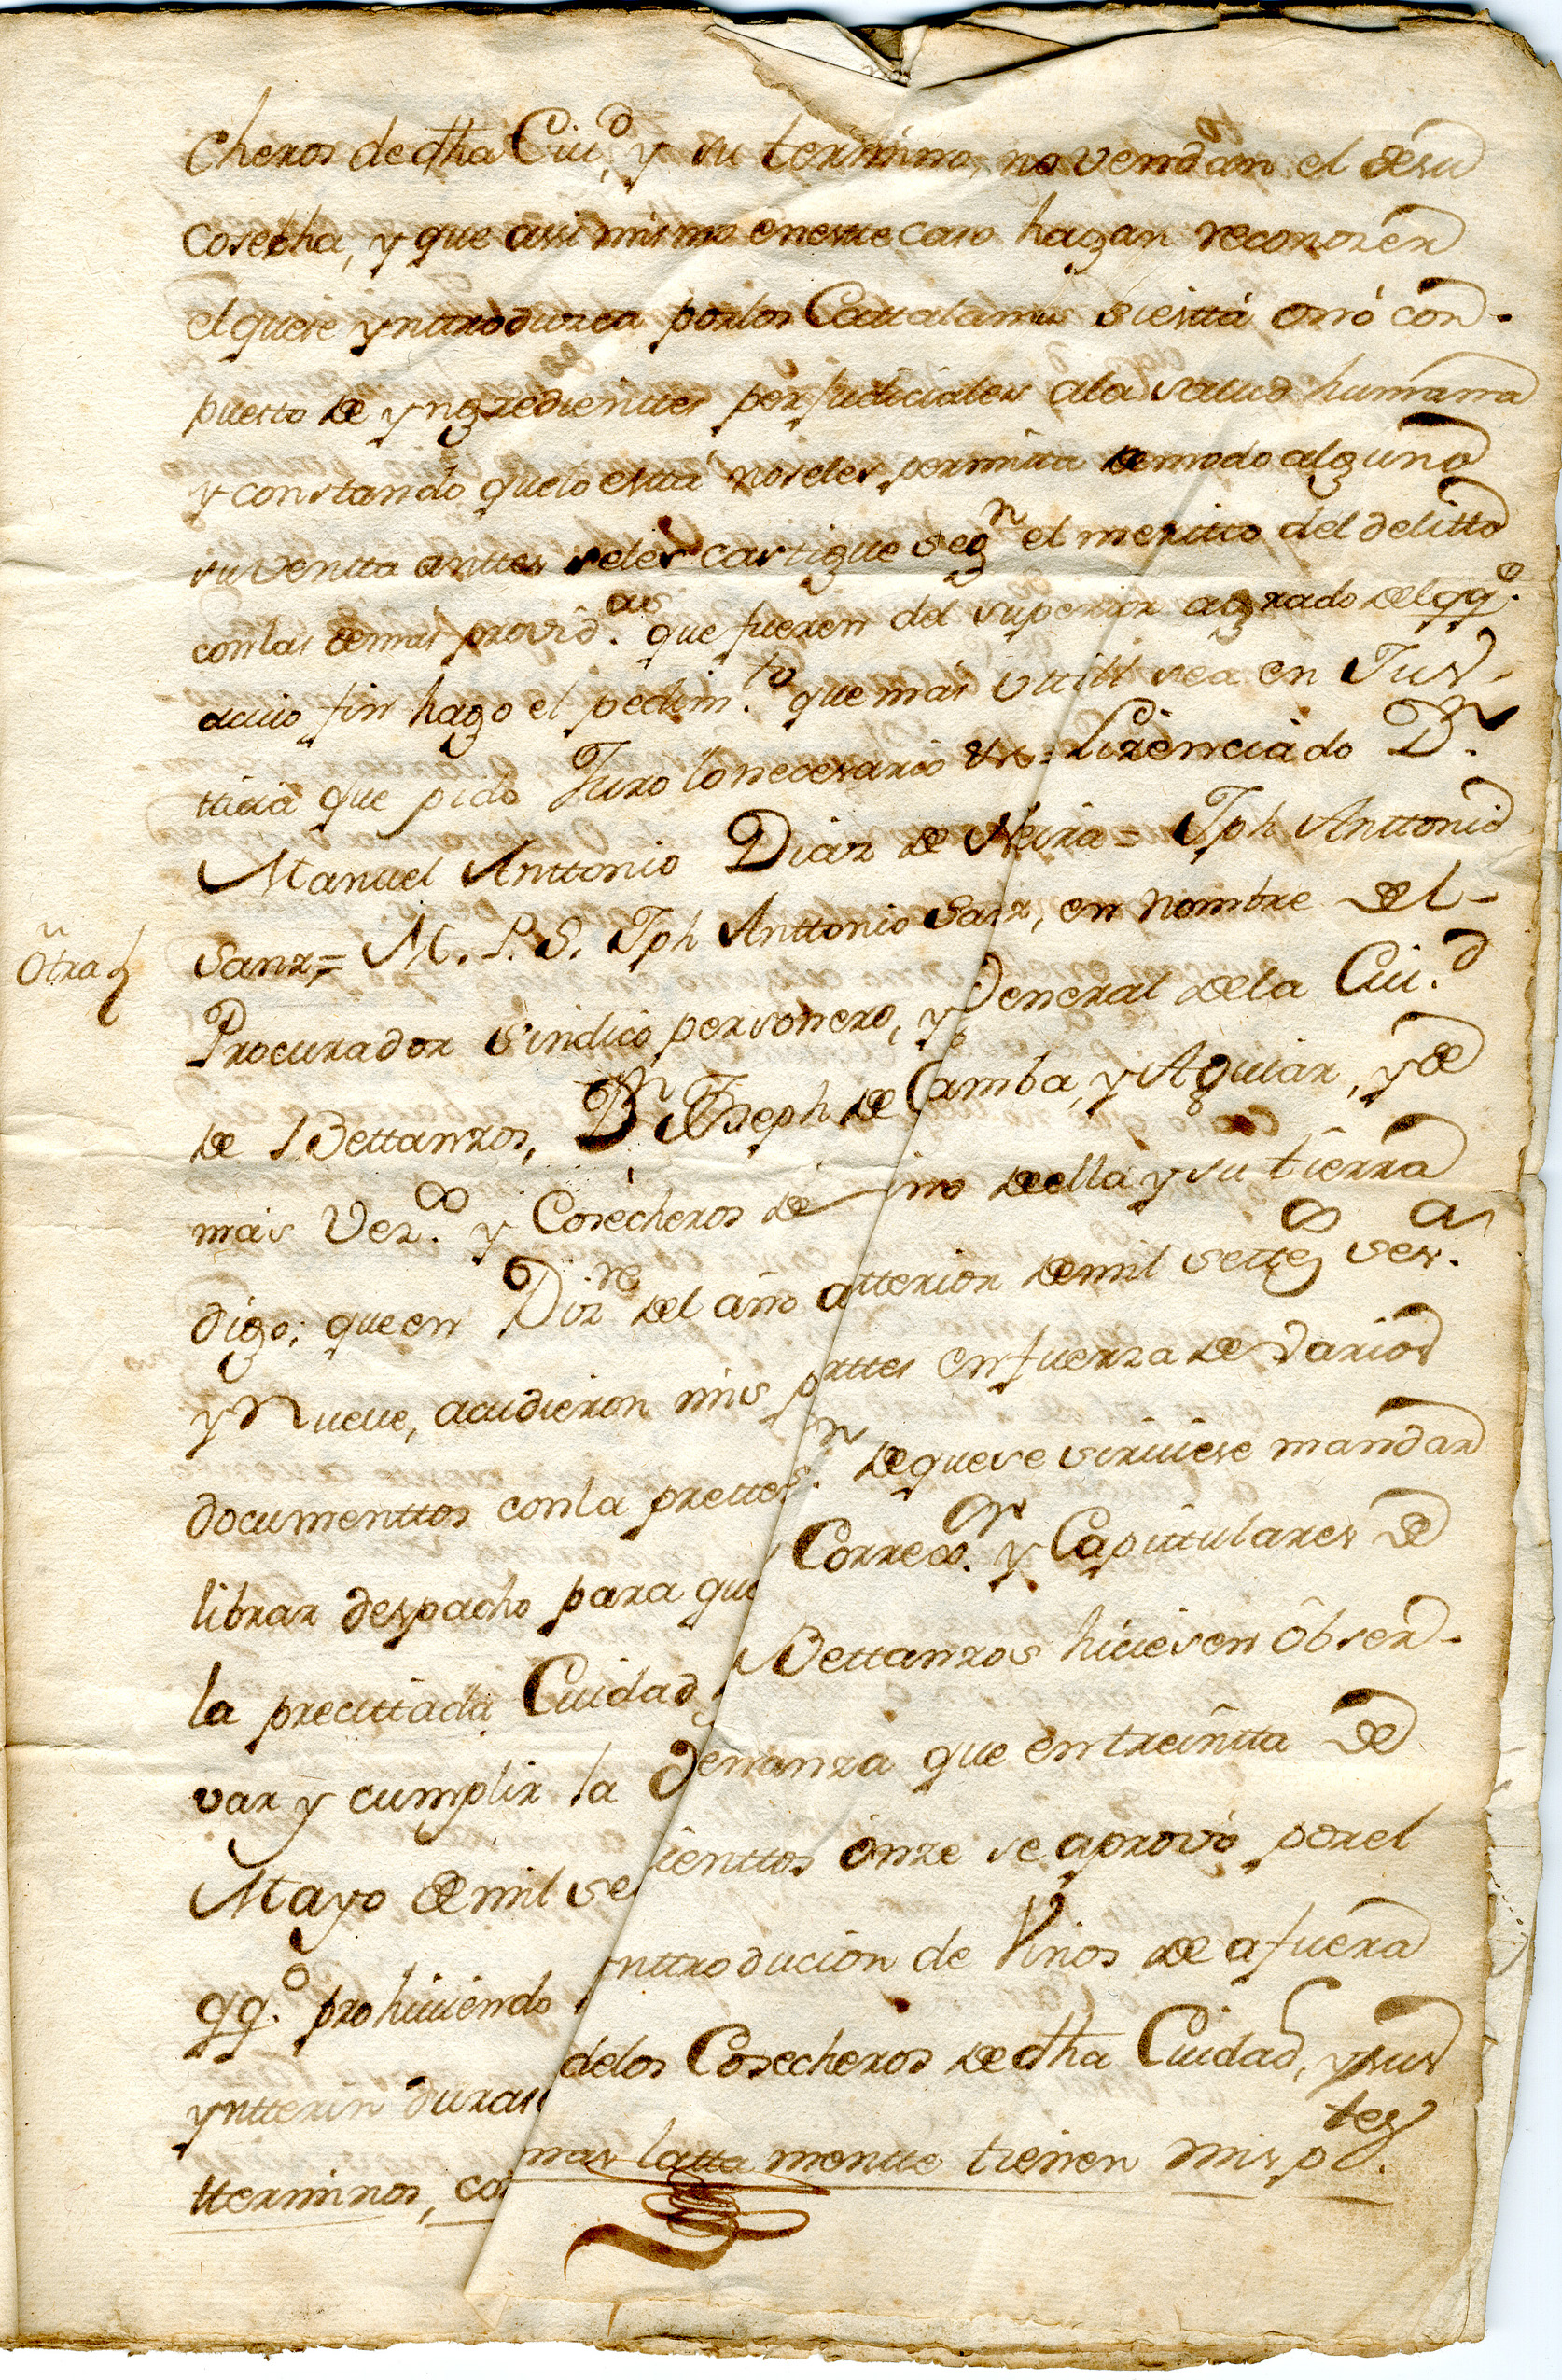 cheros de dha Ciud, y su termino, no vendan el desu
Cosecha, y que assi mismo enestte caso hagan reconozer
elquese ynttroduzca porlos Cattalanes siesttá onó con-
puesto de yngredienttes perjudiciales ala salud humana
y constando quelo esttá noseles permitta demodo alguno
su ventta anttes seles castigue segn el meritto del delitto
conlas demas provid.as que fueren del superior agrado delqq.o
acuio fin hago el pedim.to que más uttill sea en Jus-
ticia que pido Juro lonecesario &a = Lizenciado Dn.
Manuel Anttonio Diaz de Neira = Jph Anttonio
Otra
Sanz = M. P. S. Jph Anttonio Sanz, en nombre del-
Procurador Sindico personero, y General dela Ciu.d
de Bettanzos, Dn Joseph de Camba, y Aguiar, y de
más Vez.os y Cosecheros de ino deella y su tierra
digo; queen Diz.re del año antterior demil settezos ses.a
y Nueve, acudieron mis parttes enfuerza de varios
documenttos conla prettes.n dequese sirviese mandar
librar despacho para que Correxor. y Capittulares de
la precittada Ciudad Bettanzos hiciesen Obser-
var y cumplir la denanza que entreintta de
Mayo de mil se ienttos onze se aprovó porel
qq.o prohiviendo nttroducion de Vinos de afuera
yntterin duras delos Cosecheros de dha Ciudad, y sus
tterminos, co mas latta mentte tienen mis p.tes